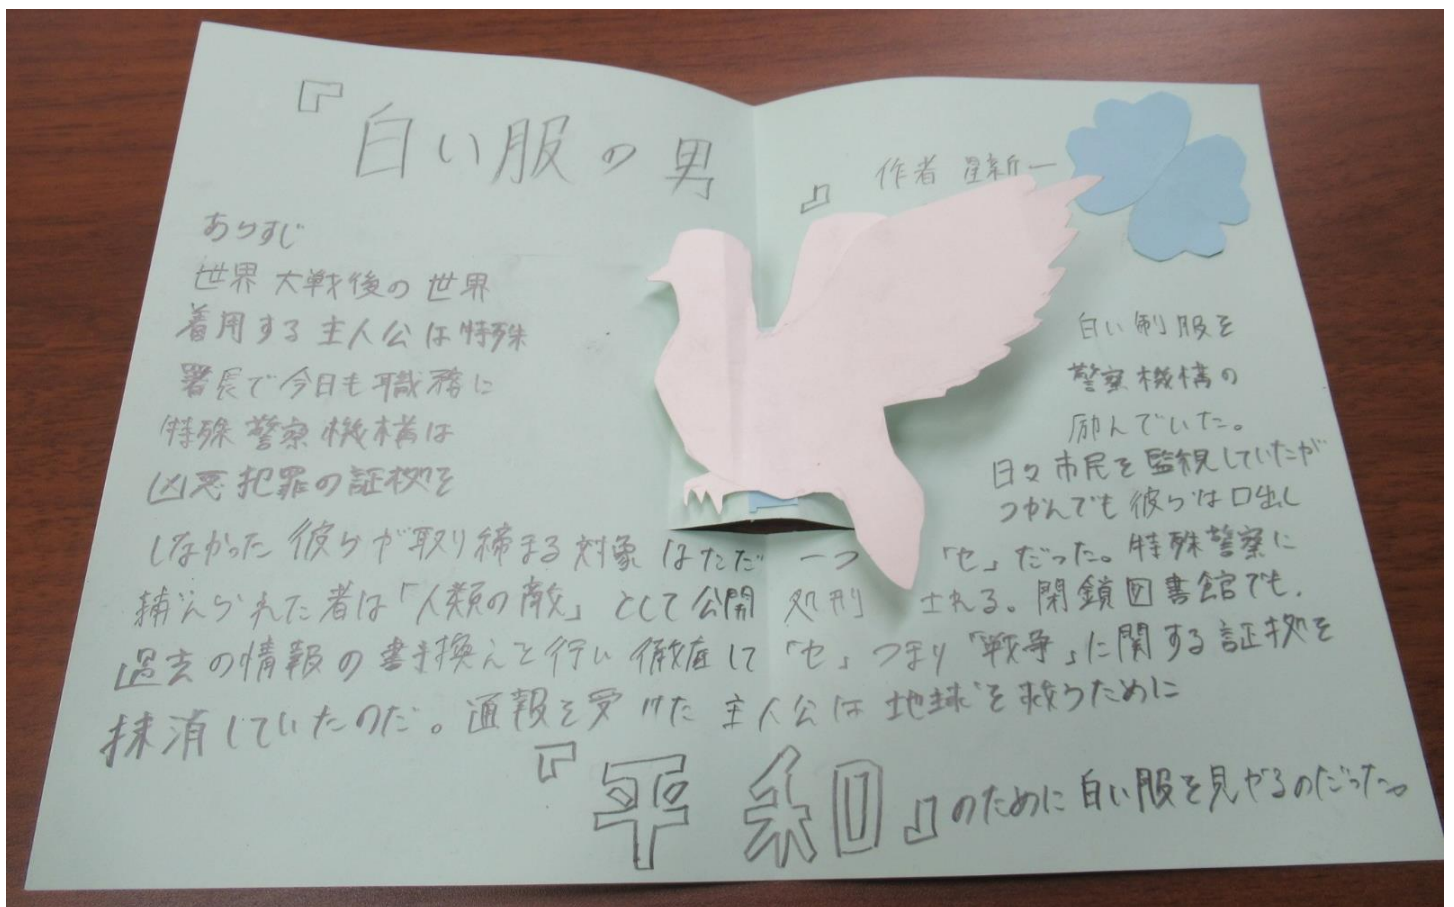 『白い服の男』
作者 星新一
あらすじ
世界大戦後の世界 白い制服を
着用する主人公は特殊 警察機構の
署長で今日も職務に 励んでいた。
特殊警察機構は 日々市民を監視していたが
凶悪犯罪の証拠を つかんでも彼らは口出し
しなかった彼らが取り締まる対象はただ一つ「セ」だった。特殊警察に
捕えられた者は「人類の敵」として公開処刑される。閉鎖図書館でも、
過去の情報の書き換えを行い徹底して「セ」つまり「戦争」に関する証拠を
抹消していたのだ。通報を受けた主人公は地球を救うために
『平和』のために白い服を見やるのだった。